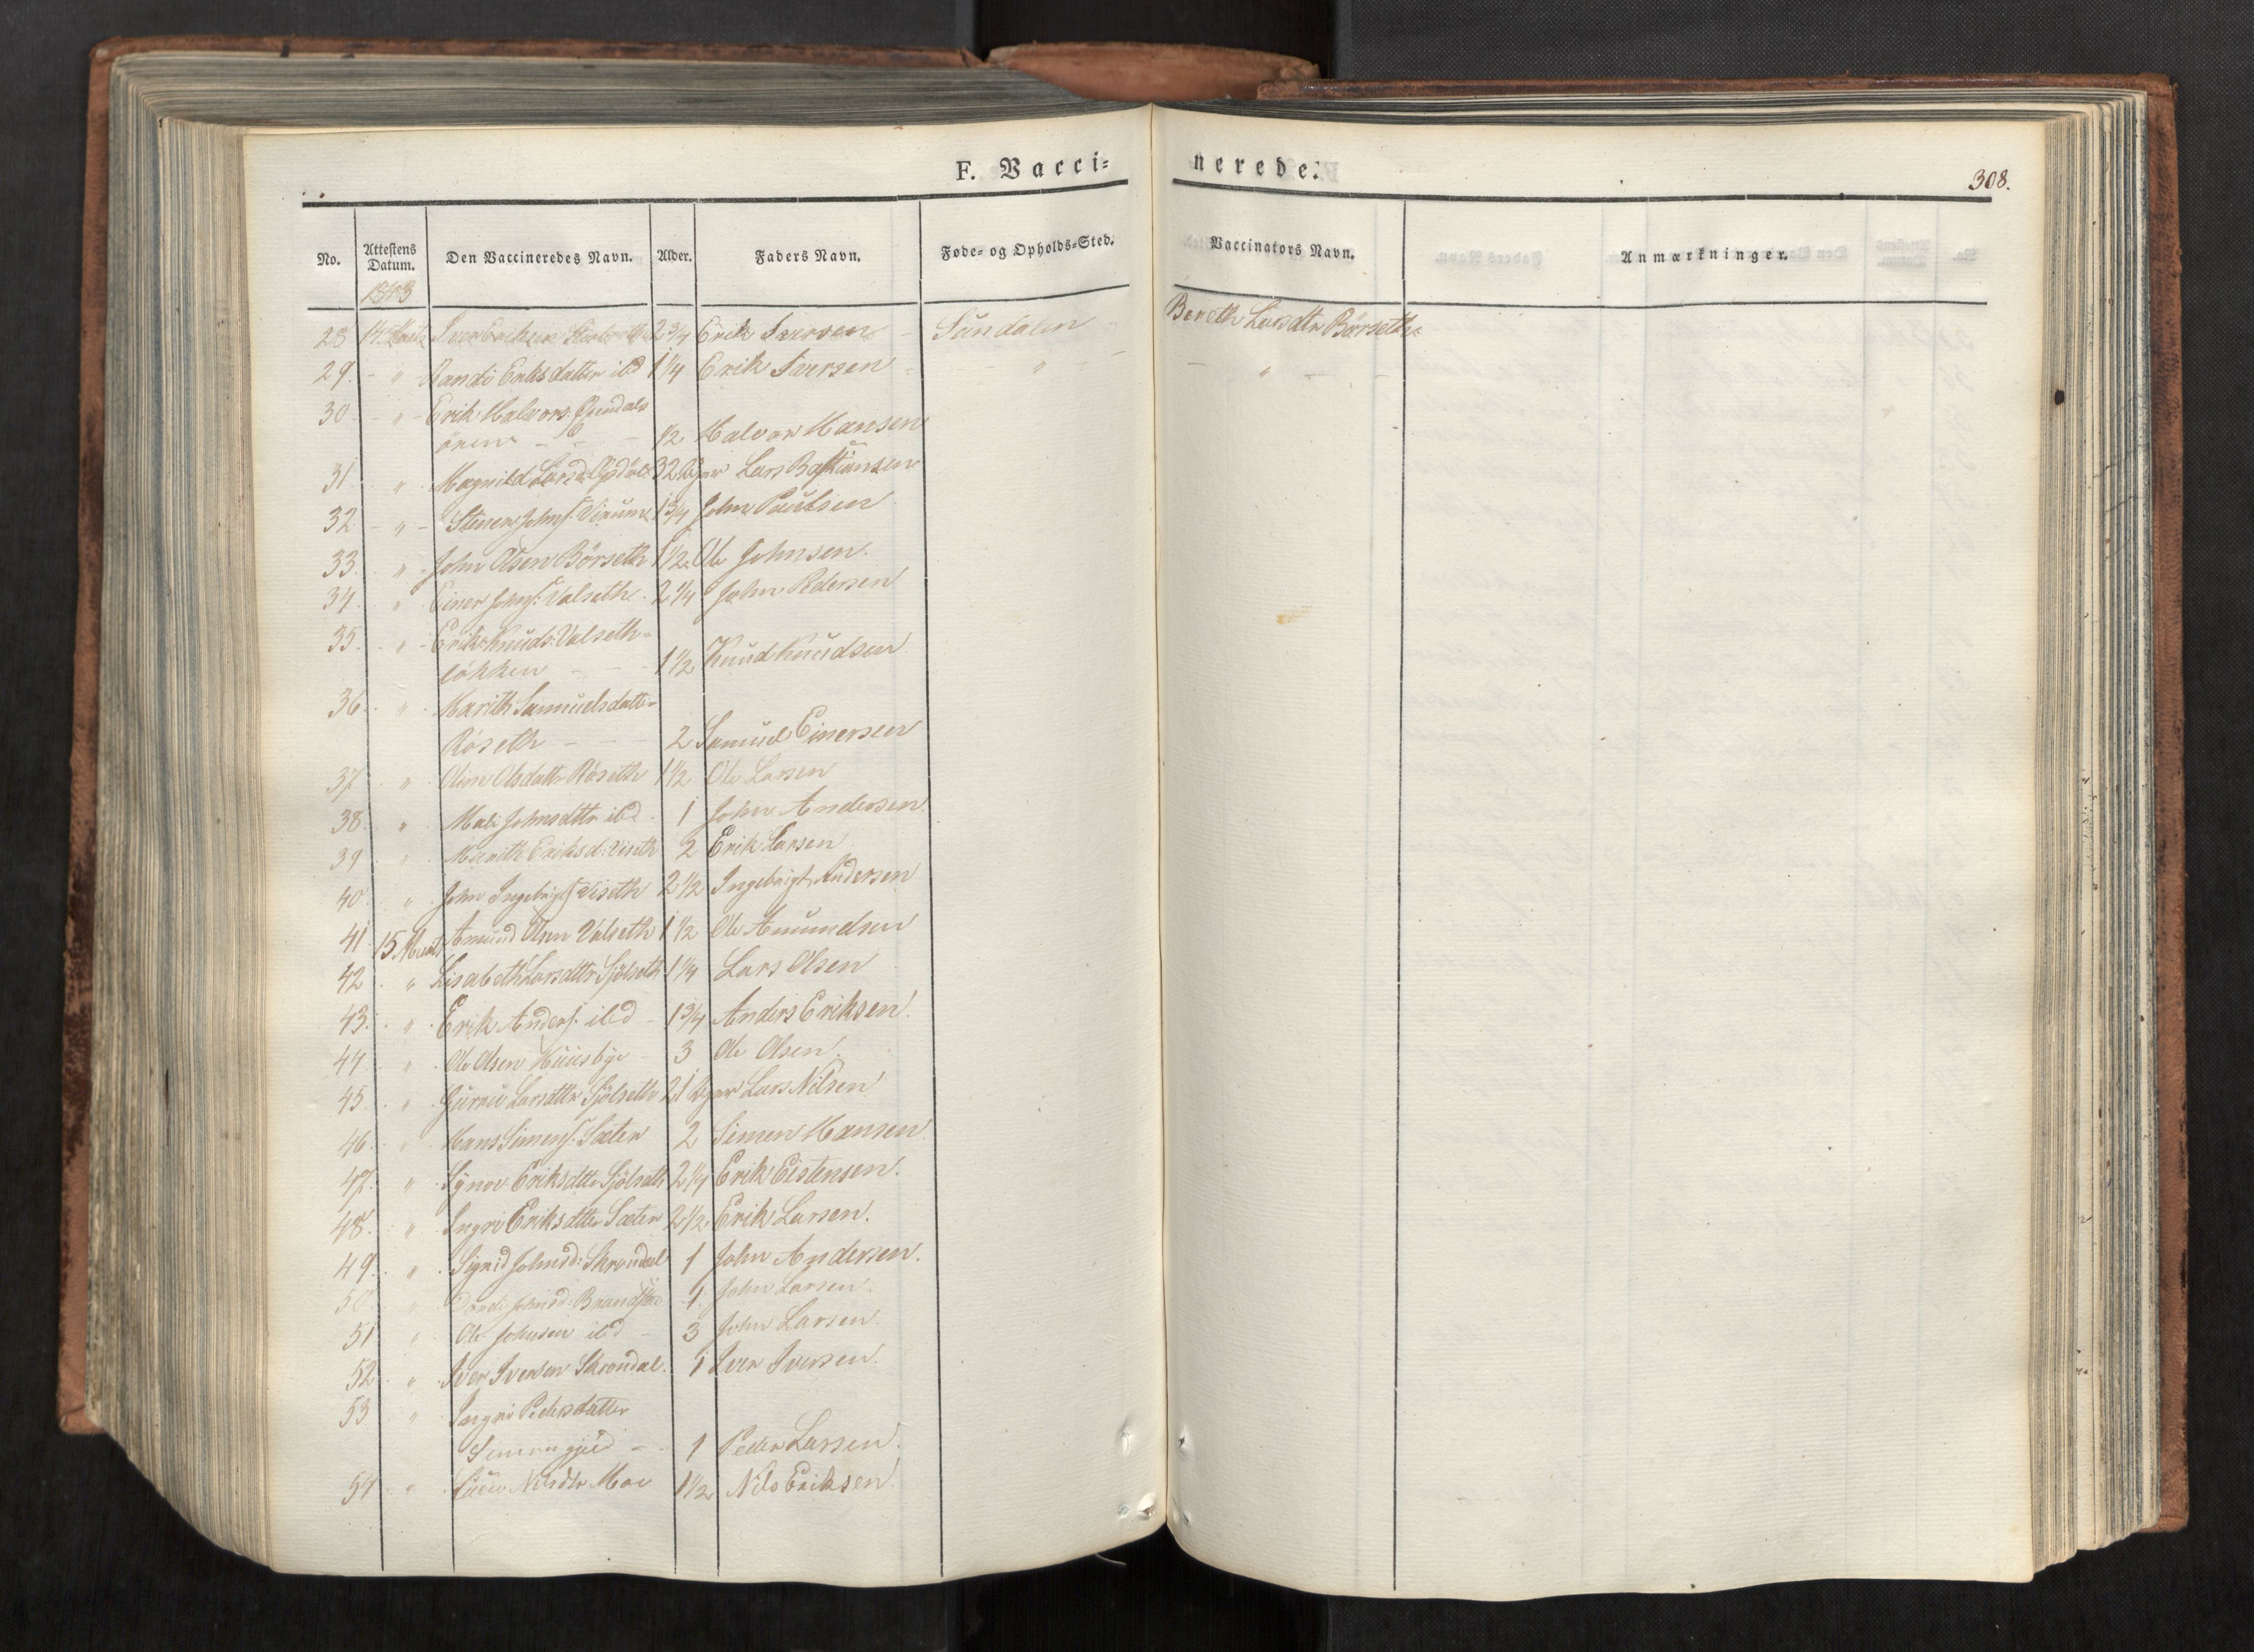 F. Vacci=
nerede.
308.
No. Attestens Datum. Den Vaccineredes Navn. Alder. Faders Navn. Føde- og Opholds-Sted. Vaccinators Navn. Anmærkninger.
1843
28 14 Iver Eriksen 2 3/4 Erik Iversen Sundalen Bereth Larsdtr Börseth
29. " Randi Eriksdatter ibd 1 1/4 Erik Iversen " "
30 " Erik Halvors:
ören 1/2 Halvor Hansen
31 " Magnild Larsd: 32 Lars Bastiansen
32 " Stener Johns: 1 3/4 John Paulsen
33. " John Olsen Börseth 1 1/2 Ole Johnsen.
34. " Einer Johns: Valseth 2 1/4 John Pedersen
35. " Erik Knuds: Valseth-
lökken 1 1/2 Knud Knudsen
36. " Marith Samuelsdatter
Röseth 2 Samuel Einersen
37 " Oline Olsdattr Röseth 1 1/2 Ole Larsen
38. " Mali Johnsdttr ibd 1 John Andersen
39 " Marith Eriksd: Viseth 2 Erik Larsen
40. " John Ingebrigts: Viseth 2 1/2 Ingebrigt Andersen
41 15 Marts Amund Olsen Valseth 1 1/2 Ole Amundsen
42 " Lisabeth Larsdttr Sjölseth 1 1/4 Lars Olsen
43. " Erik Anders: ibd 1 3/4 Anders Eriksen.
44 " Ole Olsen Huusbye 3 Ole Olsen.
45. " Guru Larsdttr Sjölseth 21 Lars Nilsen
46. " Hans Simens: Sæter 2 Simen Hansen
47. " Synov Eriksdttr Sjölseth 2 1/4 Erik Eistensen.
48. " Ingri Eriksdttr Sæter 2 1/2 Erik Larsen.
49. " Sigrid Johnsd: Skrondal 1 John Andersen.
50. " Dordi Johnsd: 1 John Larsen.
51 " Ole Johnsen ibd 3 John Larsen.
52 " Iver Iversen Skrondal. 1 Iver Iversen.
53. " Ingri Pedersdatter
1 Peder Larsen.
54 " Nilsdtr Moe 1 1/2 Nils Eriksen